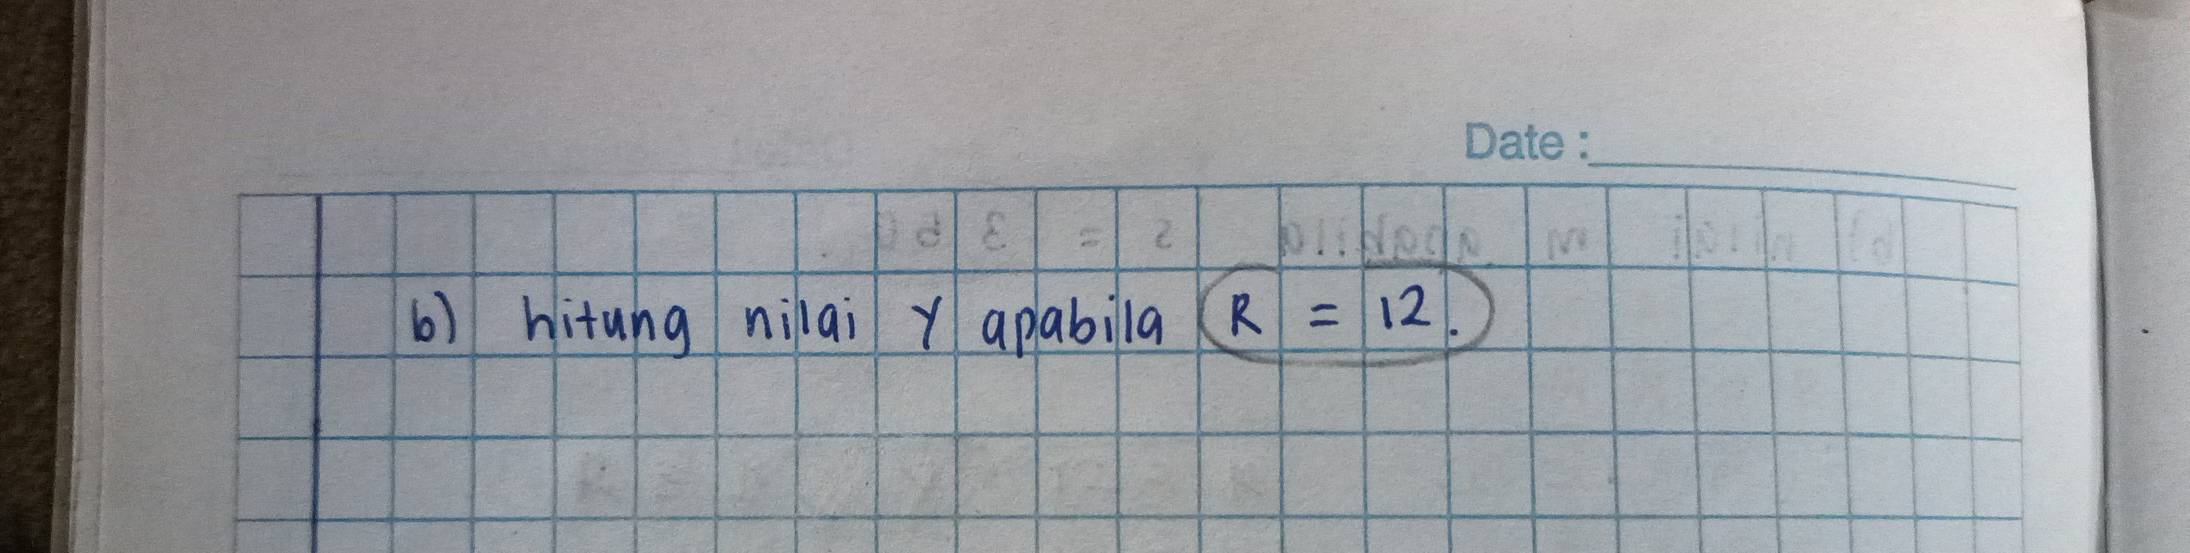 Date :
b) hitung nilai Y apabila R = 12.